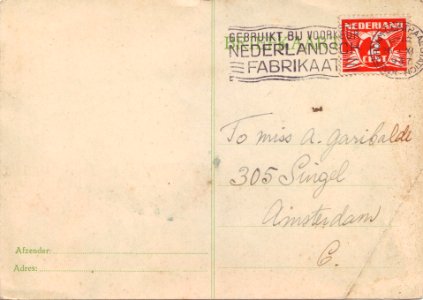 GEBRUIKT BIJ VOORKEUR
NEDERLANDSCH
FABRIKAAT
NEDERLAND
CENT
To miss A. Garibaldi
305 Singel
Amsterdam
C.
Afzender:
Adres: